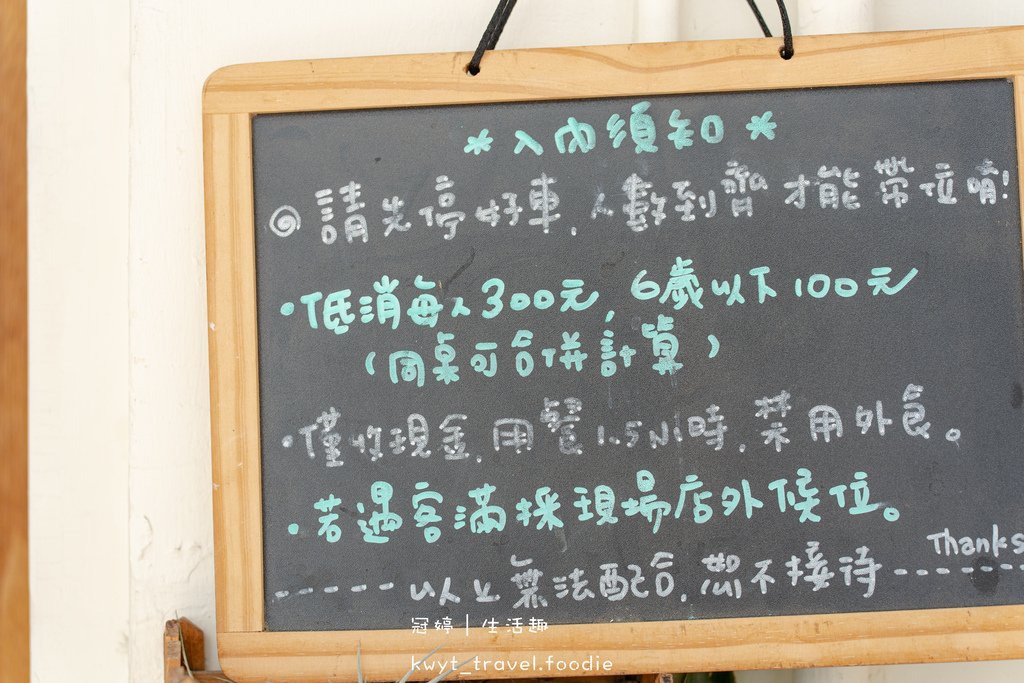 * 入內須知 *
◎ 請先停好車, 人數到齊才能帶位唷!
• 低消每人300元, 6歲以下100元
(同桌可合併計算)
• 僅收現金, 用餐1.5小時, 禁用外食。
• 若遇客滿採現場店外候位。
----- 以上無法配合, 恕不接待 ------
Thanks
冠婷│生活趣
kwyt_travel.foodie